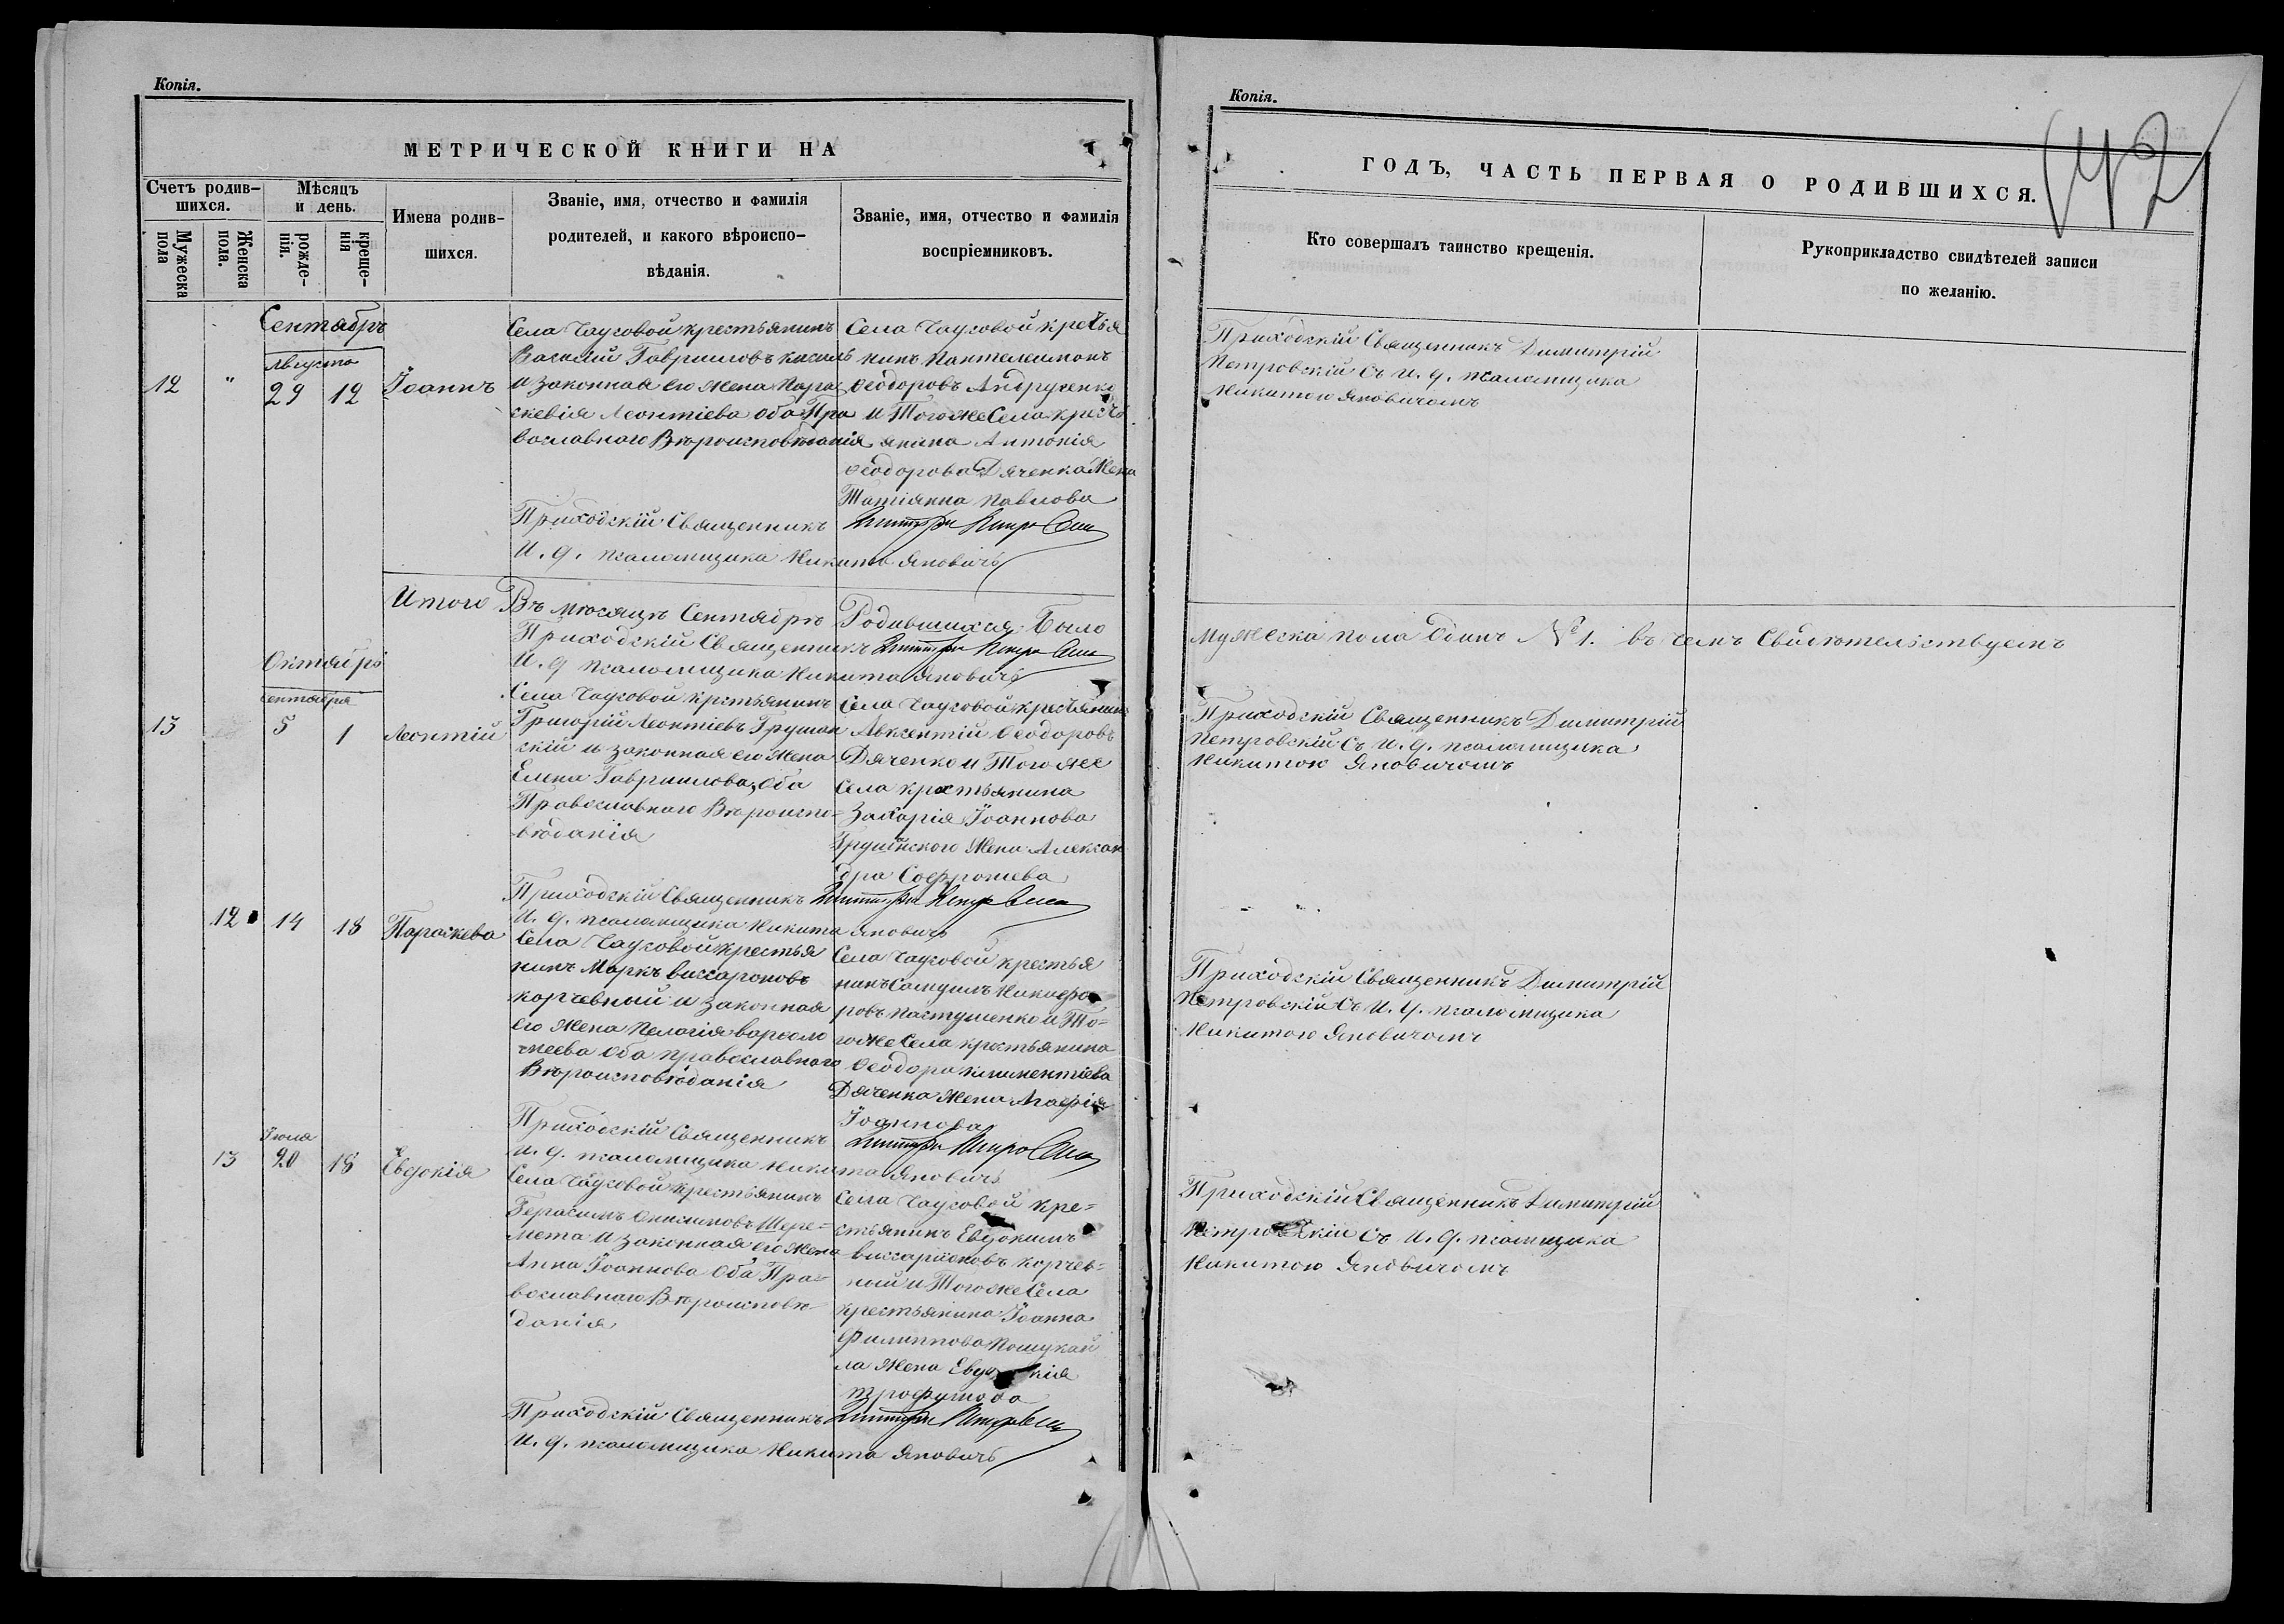 Копія.
МЕТРИЧЕСКОЙ КНИГИ НА
Счетъ родив-
шихся.
Мѣсяцъ
и день.
Имена родив-
шихся.
Званіе, имя, отчество и фамилія
родителей, и какого вѣроиспо-
вѣданія.
Званіе, имя, отчество и фамилія
воспріемниковъ.
Мужеска
пола
Женска
пола.
рожде-
нія.
креще-
нія
Сентябрь
Августа
12 " 29 12 Іоаннъ
Села Чаусовой крестьянинъ
Василий Гавриловъ
и законная его жена Пара
скевія Леонтіева оба Пра
вославнаго Вѣроисповѣданія
Села Чаусовой крестья
нинъ Пантелеимонъ
Ѳеодоровъ Андрусенко
и Того же Села кресть
янина Антонія
Ѳеодорова Дяченка Жена
Татіянна Павлова
Приходскій Священникъ
И. д. псаломщика Никита Яновичъ
Итого Въ мѣсяцѣ Сентябрѣ Родившихся Было
Приходскій Священникъ
И. д псаломщика Никита Яновичъ
Октябрь
сентября
13 5 1 Леонтій
Села Чаусовой крестьянинъ
Григорій Леонтіевъ Грушан
скій и законная его Жена
Елена Гавриилова, Оба
Православнаго Вѣроиспо-
вѣданія
Села Чаусовой крестьянинъ
Авксентій Ѳеодоровъ
Дяченко и Того же
Села крестьянина
Захарія Іоаннова
Грушанского Жена Алексан
дра Софрониева
Приходскій Священникъ
И. д. псаломщика Никита Яновичъ
12 14 18 Параскева
Села Чаусовой крестья
нинъ Маркъ Виссароновъ
корчевный и законная
его Жена Пелагія Варѳоло
меева Оба православного
Вѣроисповѣданія
Села Чаусовой крестья
нинъ Самуилъ Никифо
ровъ Пастушенко и То-
гоже Села крестьянина
Ѳеодора Климентіева
Дяченка Жена
Приходскій Священникъ
И. д. псаломщика Никита Яновичъ
Іюля
13 20 18 Евдокія
Села Чаусовой крестьянинъ
Герасимъ Онисимовъ Шере-
мета и законная его Жена
Анна Іоаннова Оба Пра-
вославнаго Вѣроисповѣ-
данія
Села Чаусовой кре-
стьянинъ Евдокимъ
Виссаріоновъ корчев-
ный и Того же Села
крестьянина Іоанна
Филиппова
ла Жена Евдокія
Приходскій Священникъ
И. д. псаломщика Никита Яновичъ
Копія.
142
ГОДЪ, ЧАСТЬ ПЕРВАЯ О РОДИВШИХСЯ.
Кто совершалъ таинство крещенія.
Рукоприкладство свидѣтелей записи
по желанію.
Приходскій Священникъ Димитрій
Петровскій съ И. д. псаломщика
Никитою Яновичомъ
Мужеска пола Одинъ № 1. въ чемъ Свидѣтельствуемъ
Приходскій Священникъ Димитрій
Петровскій Съ И. д. псаломщика
Никитою Яновичомъ
Приходскій Священникъ Димитрій
Петровскій Съ И. д. псаломщика
Никитою Яновичомъ
Приходскій Священникъ Димитрій
Петровскій Съ И. д. псаломщика
Никитою Яновичомъ